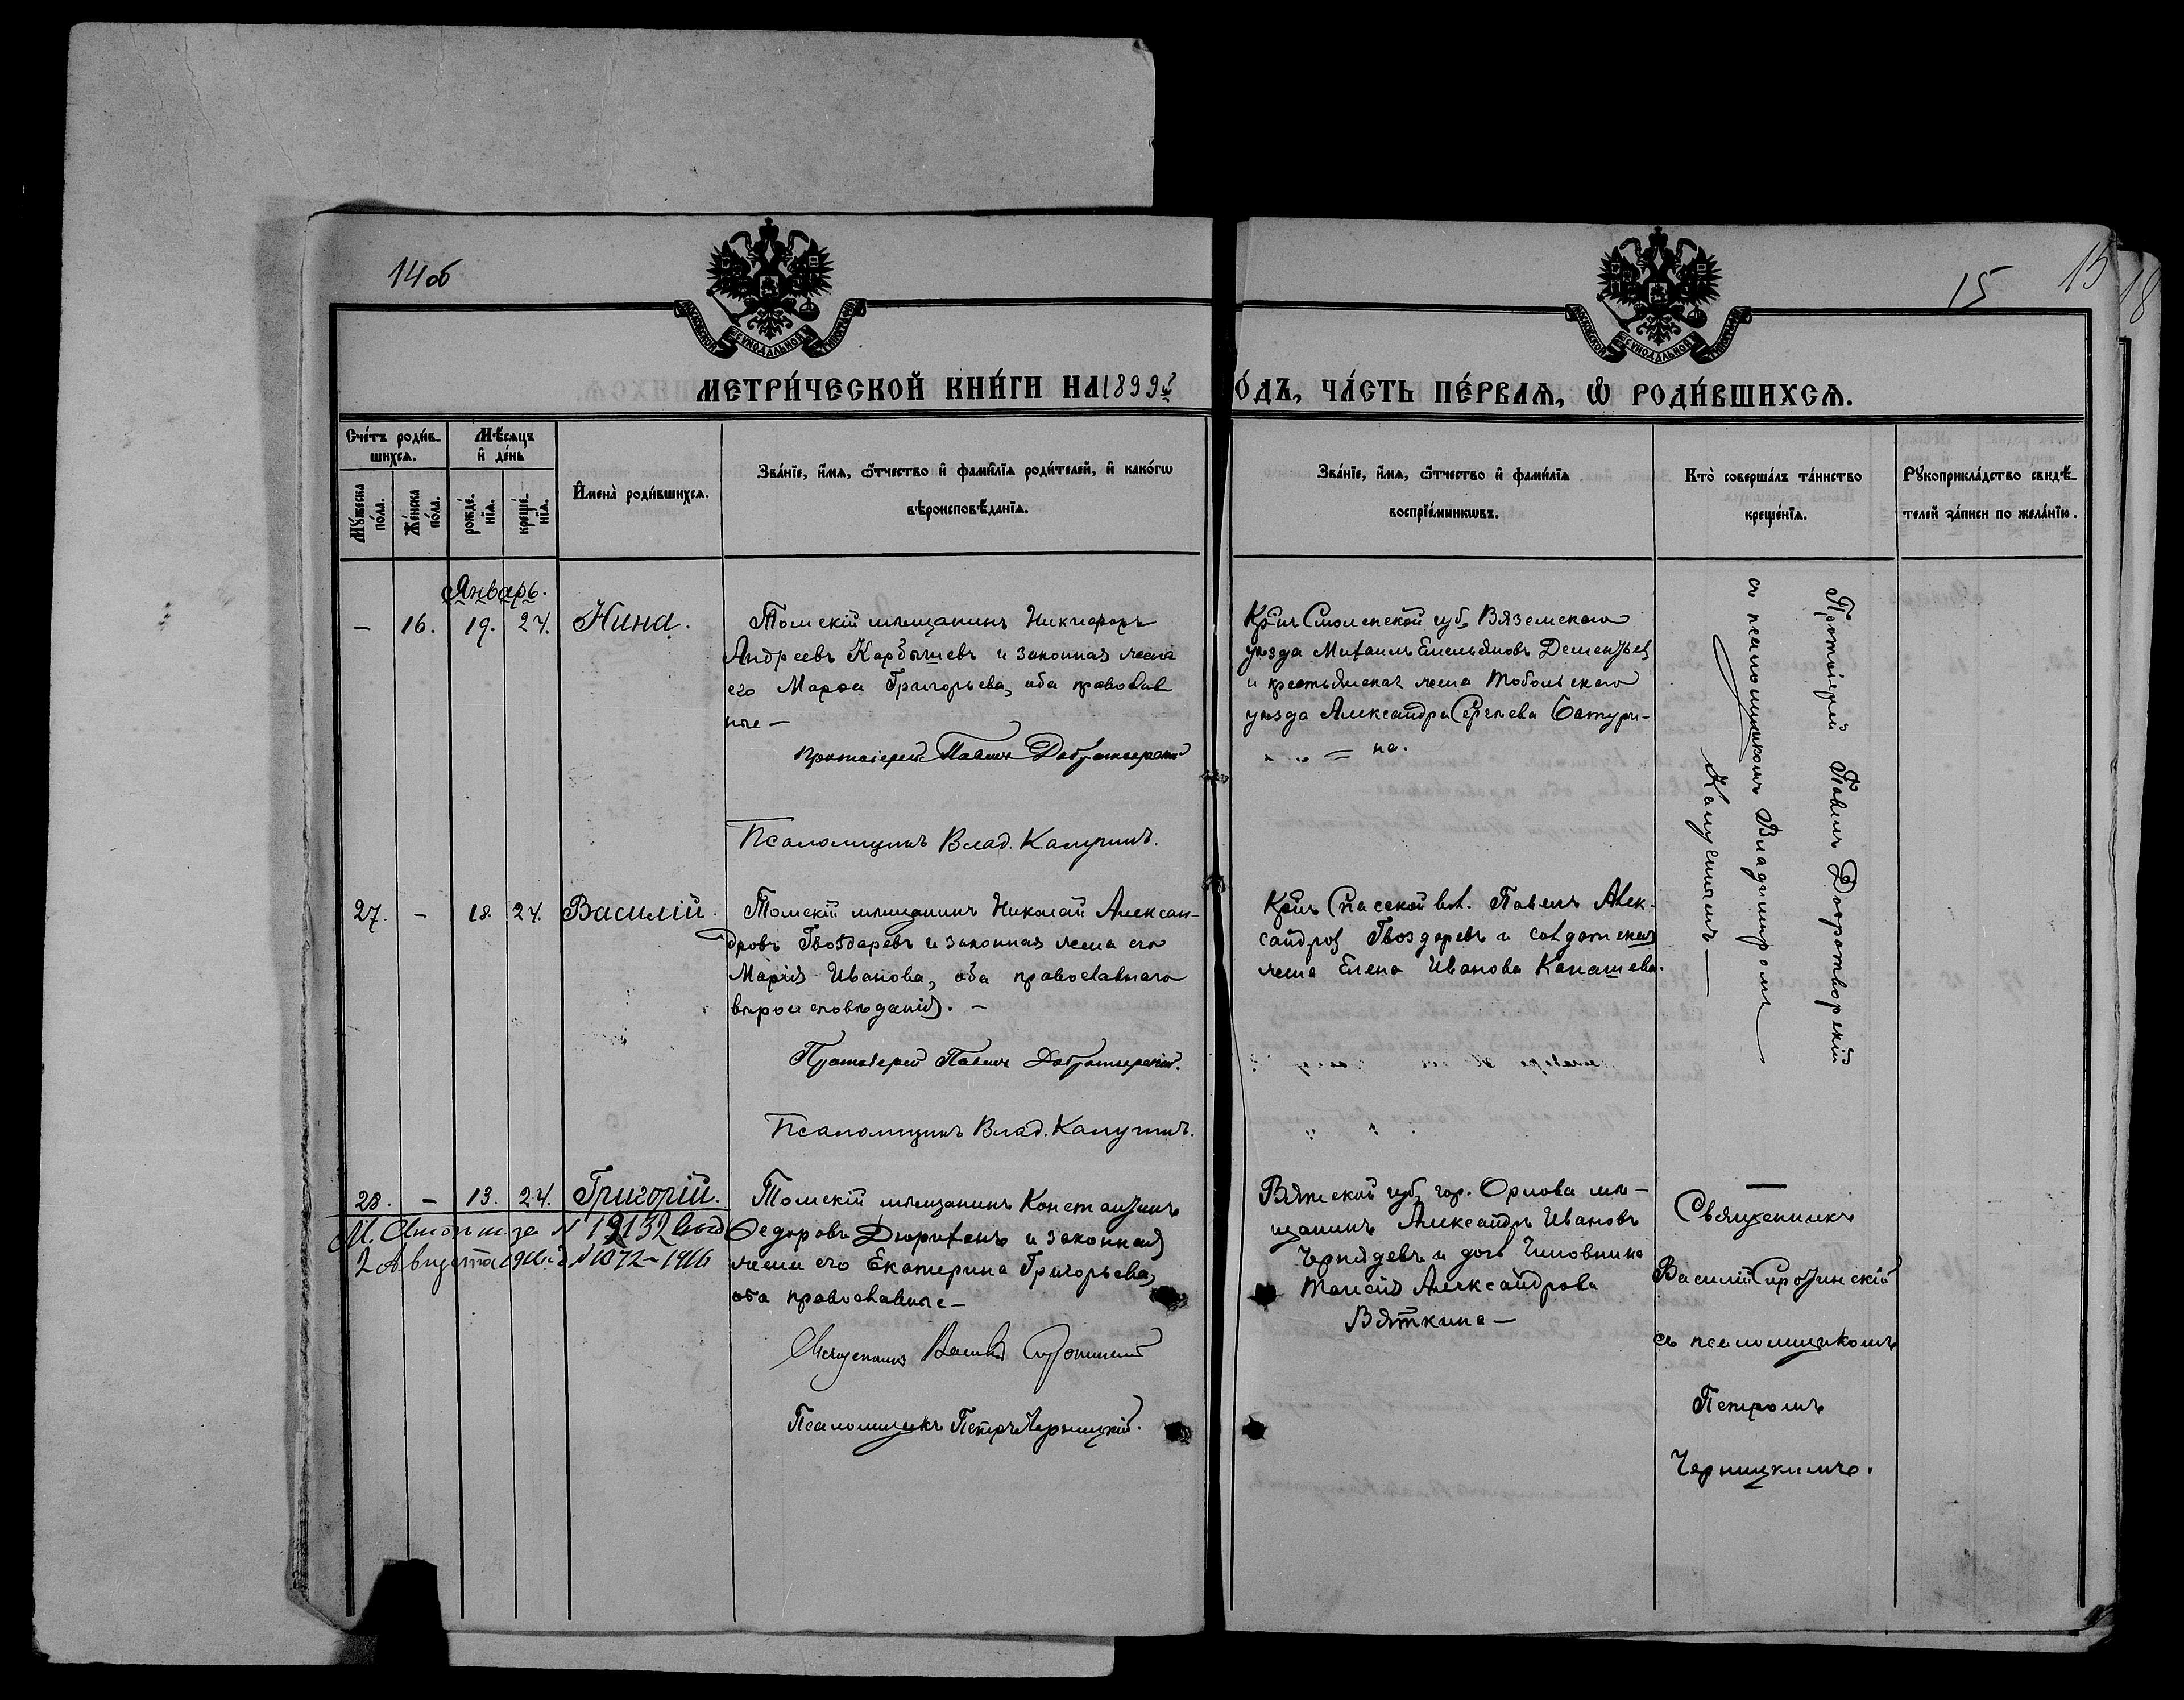 14об
15
15
18
МОСКОВСКОЙ СѴНОДАЛЬНОЙ ТИПОГРАФІИ
МОСКОВСКОЙ СѴНОДАЛЬНОЙ ТИПОГРАФІИ
МЕТРИ́ЧЕСКОЙ КНИ́ГИ НА 1899 г
О́ДЪ, ЧА́СТЬ ПЕ́РВАѦ, Ѡ҆ РОДИ́ВШИХСѦ.
Сче́тъ роди́в-
шихсѧ.
Мѣ́сѧцъ
и҆ де́нь
Мꙋ́жеска
по́ла.
Же́нска
по́ла.
рожде́-
нїѧ.
креще́-
нїѧ.
И҆мена̀ роди́вшихсѧ.
Зва́нїе, и҆́мѧ, ѻ҆́тчество и҆ фами́лїѧ роди́телей, и҆ како́гѡ
вѣроисповѣ́данїѧ.
Зва́нїе, и҆́мѧ, ѻ҆́тчество и҆ фами́лїѧ
воспрїе́мникѡвъ.
Кто̀ соверша́лъ та́инство
креще́нїѧ.
Рꙋкоприкла́дство свидѣ́-
телей за́писи по жела́нїю.
Январь.
– 16. 19. 24. Нина.
Томскій мѣщанинъ Никифоръ
Андреевъ Карбышевъ и законная жена
его Марѳа Григорьева, оба православ
ные —
Протоіерей Павелъ Добротворскій
Псаломщикъ Влад. Калугинъ.
Кр-нъ Смоленской губ, Вяземскаго
уѣзда Михаилъ Емельяновъ Дементьевъ
и крестьянская жена Тобольскаго
уѣзда Александра Сергеева Батури-
на.
Протоіерей Павелъ Добротворскій
съ псаломщикомъ Владимиромъ
Калугинымъ —
27. – 18. 24. Василій.
Томскій мѣщанинъ Николай Алексан-
дровъ Гвоздаревъ и законная жена его
Марія Иванова, оба православнаго
вѣроисповѣданія. —
Протоіерей Павелъ Добротворскій.
Псаломщикъ Влад. Калугинъ.
Кр-нъ Спасской вол. Павелъ Алек-
сандровъ Гвоздаревъ и солдатская
жена Елена Иванова Канашева.
28. – 13. 24. Григорій.
2 Августа N 1072 – 1916
Томскій мѣщанинъ Константинъ
Ѳедоровъ Дюрягинъ и законная
жена его Екатерина Григорьева,
оба православные —
Священникъ Василій Сиротинскій
Псаломщикъ Петръ Черницкій.
Вятской губ, гор. Орлова мѣ-
щанинъ Александръ Ивановъ
и дочь Чиновника
Таисія Александрова
Вяткина —
Священникъ
Василій Сиротинскій
съ псаломщикомъ
Петромъ
Черницкимъ.